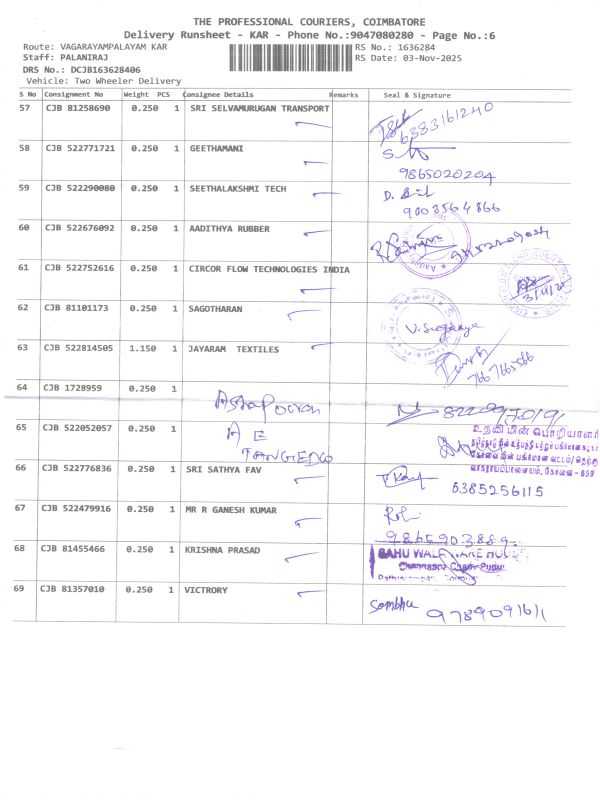 THE PROFESSIONAL COURIERS, COIMBATORE
Delivery Runsheet - KAR - Phone No.:9047080280 - Page No.:6
Route: VAGARAYAMPALAYAM KAR
RS No.: 1636284
Staff: PALANIRAJ
RS Date: 03-Nov-2025
DRS No.: DCJB163628406
Vehicle: Two Wheeler Delivery
S No Consignment No Weight PCS Consignee Details Remarks Seal & Signature
57 CJB 81258690 0.250 1 SRI SELVAMURUGAN TRANSPORT
6383161240
58 CJB 522771721 0.250 1 GEETHAMANI
9865020204
59 CJB 522290080 0.250 1 SEETHALAKSHMI TECH
9003564866
60 CJB 522676092 0.250 1 AADITHYA RUBBER
61 CJB 522752616 0.250 1 CIRCOR FLOW TECHNOLOGIES INDIA
62 CJB 81101173 0.250 1 SAGOTHARAN
63 CJB 522814505 1.150 1 JAYARAM TEXTILES
7667665566
64 CJB 1728959 0.250 1
65 CJB 522052057 0.250 1 A E
TANGEDCO
உதவி மின் பொறியாளர்
66 CJB 522776836 0.250 1 SRI SATHYA FAV
6385256115
67 CJB 522479916 0.250 1 MR R GANESH KUMAR
9865903889
68 CJB 81455466 0.250 1 KRISHNA PRASAD
69 CJB 81357010 0.250 1 VICTRORY
Sambhu 9789091611